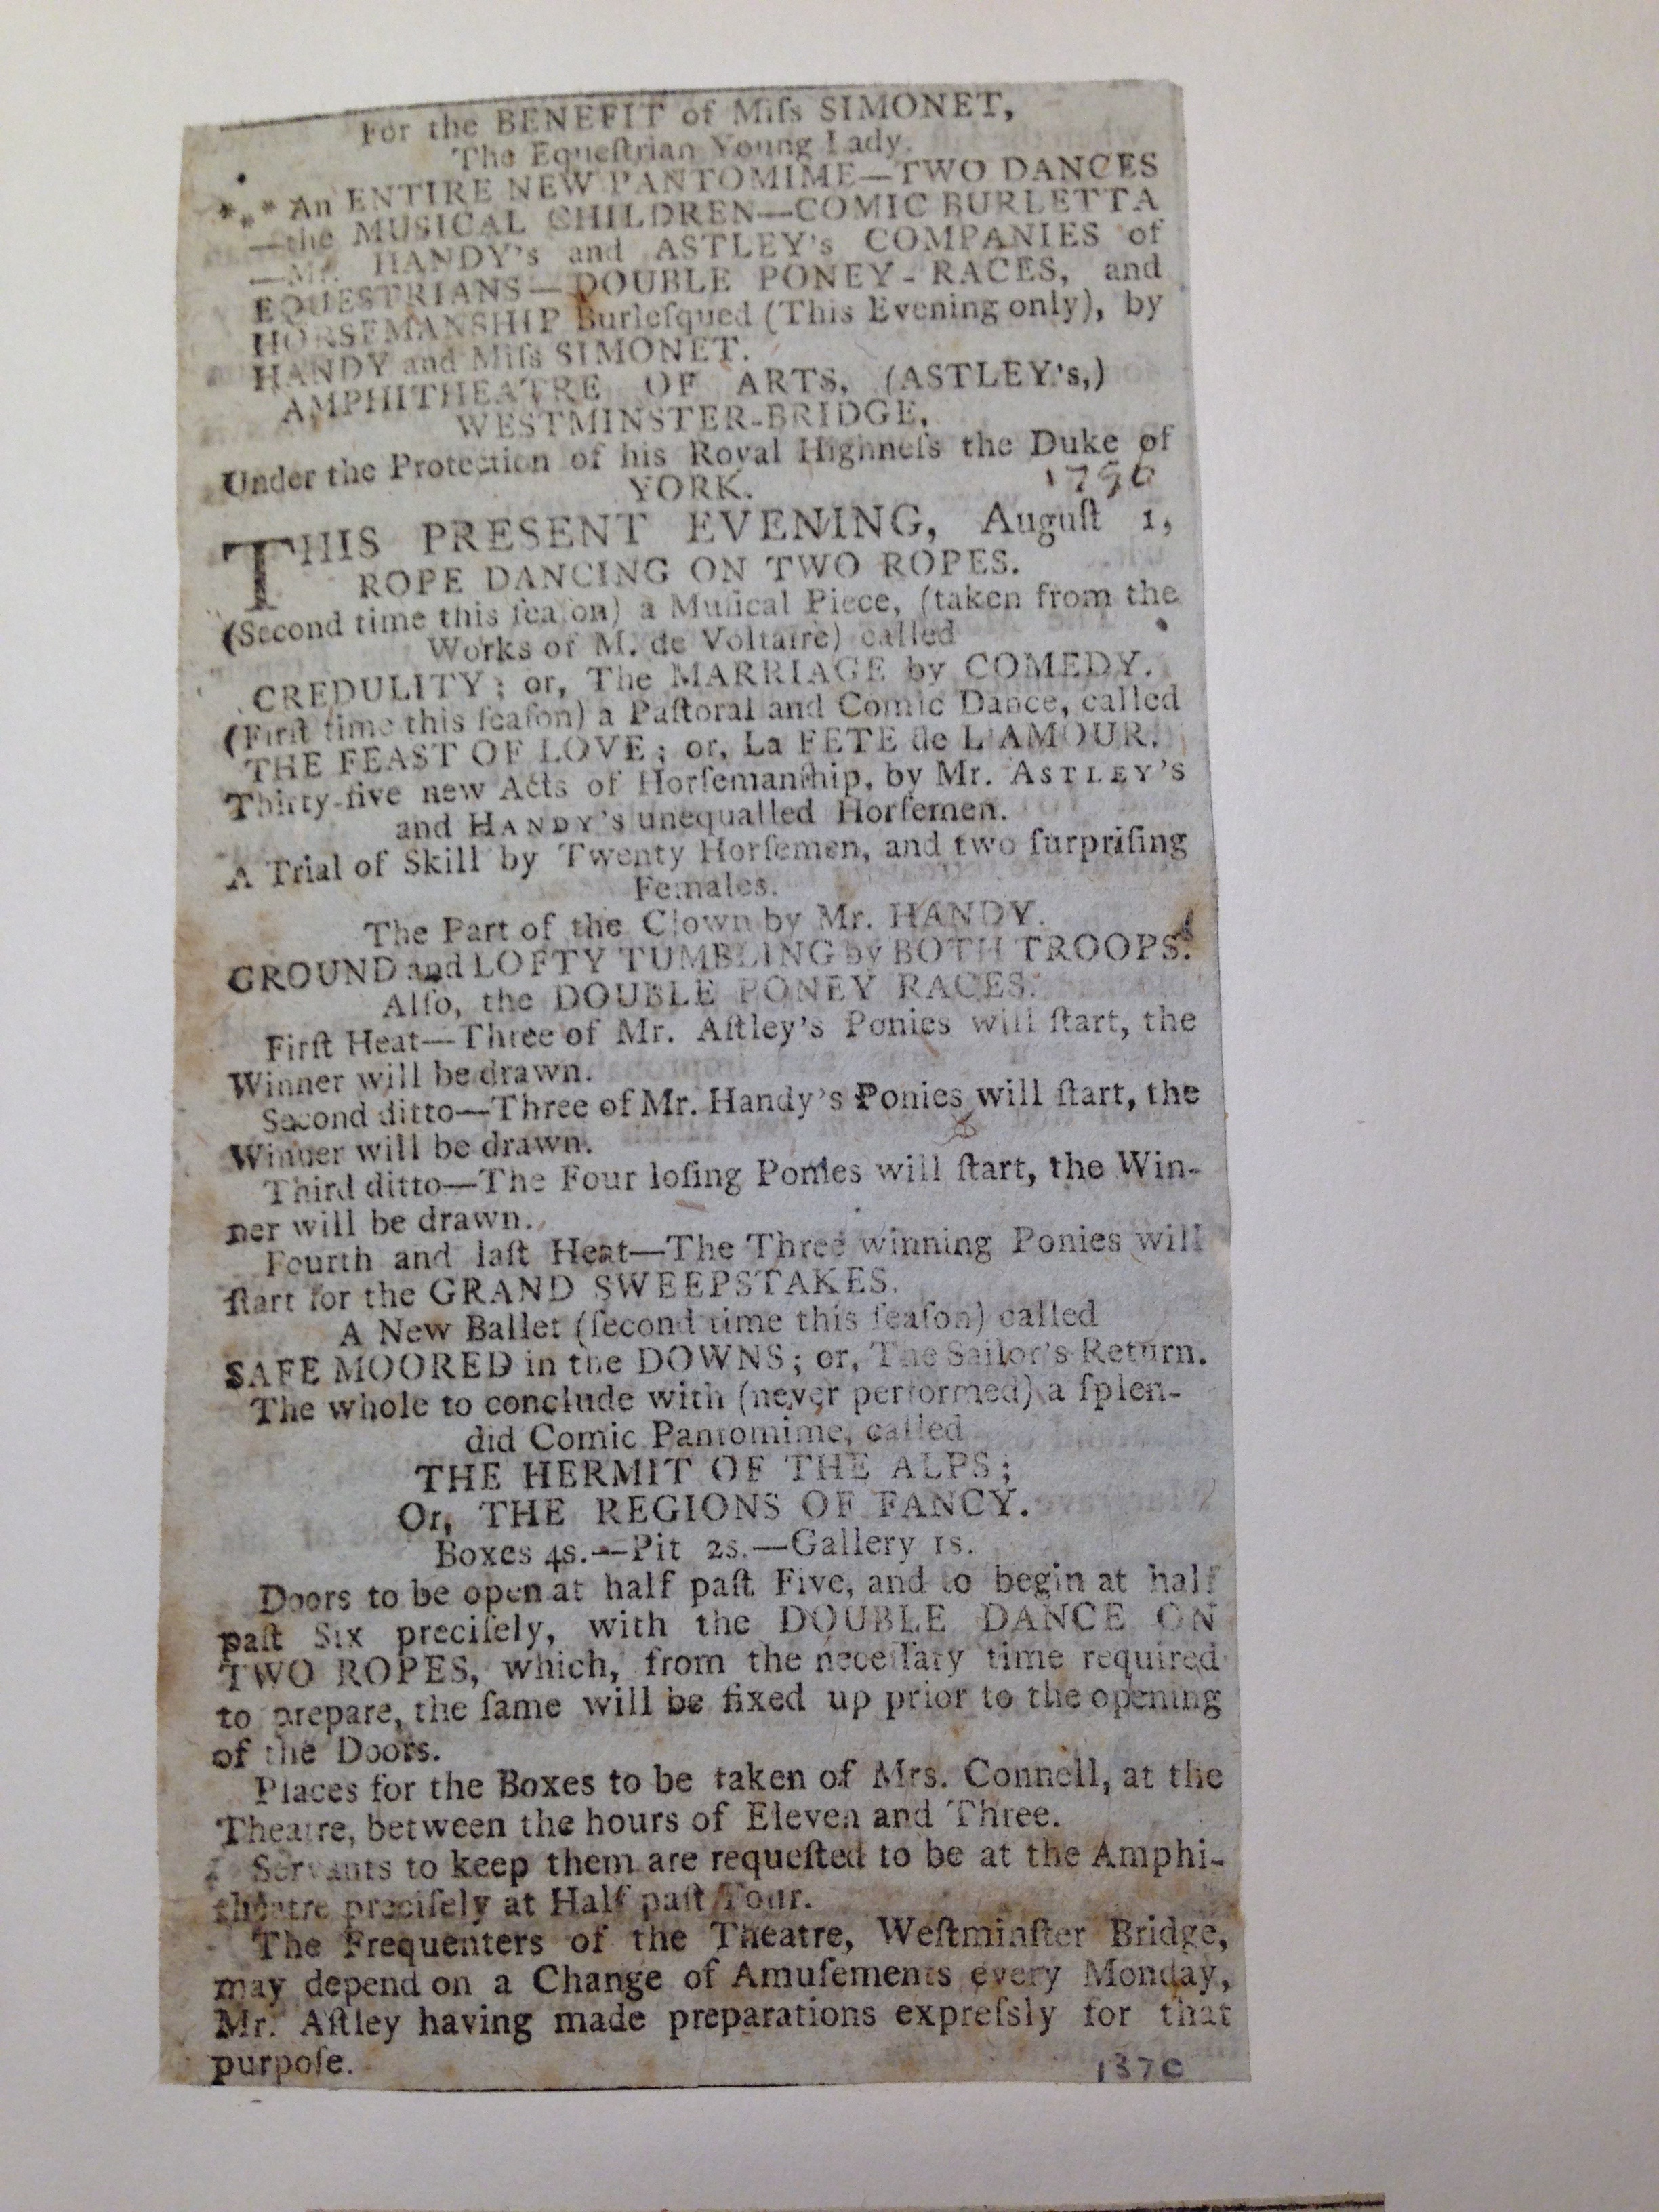 For the BENEFIT of Miſs SIMONET,
The Equeſtrian Young Lady.
*** An ENTIRE NEW PANTOMIME—TWO DANCES
—the MUSICAL CHILDREN—COMIC BURLETTA
—Mr. HANDY's and ASTLEY's COMPANIES of
EQUESTRIANS—DOUBLE PONEY-RACES, and
HORSEMANSHIP Burleſqued (This Evening only), by
HANDY and Miſs SIMONET.
AMPHITHEATRE OF ARTS, (ASTLEY's,)
WESTMINSTER-BRIDGE,
Under the Protection of his Royal Highneſs the Duke of
YORK.
THIS PRESENT EVENING, Auguſt 1,
ROPE DANCING ON TWO ROPES.
(Second time this ſeaſon) a Muſical Piece, (taken from the
Works of M. de Voltaire) called
CREDULITY; or, The MARRIAGE by COMEDY.
(Firſt time this ſeaſon) a Paſtoral and Comic Dance, called
THE FEAST OF LOVE; or, La FETE de L'AMOUR.
Thirty-five new Acts of Horſemanſhip, by Mr. ASTLEY's
and HANDY's unequalled Horſemen.
A Trial of Skill by Twenty Horſemen, and two ſurpriſing
Females.
The Part of the Clown by Mr. HANDY.
GROUND and LOFTY TUMBLING by BOTH TROOPS.
Alſo, the DOUBLE PONEY RACES.
Firſt Heat—Three of Mr. Aſtley's Ponies will ſtart, the
Winner will be drawn.
Second ditto—Three of Mr. Handy's Ponies will ſtart, the
Winner will be drawn.
Third ditto—The Four loſing Ponies will ſtart, the Win-
ner will be drawn.
Fourth and laſt Heat—The Three winning Ponies will
ſtart for the GRAND SWEEPSTAKES.
A New Ballet (ſecond time this ſeaſon) called
SAFE MOORED in the DOWNS; or, The Sailor's Return.
The whole to conclude with (never performed) a ſplen-
did Comic Pantomime, called
THE HERMIT OF THE ALPS;
Or, THE REGIONS OF FANCY.
Boxes 4s.—Pit 2s.—Gallery 1s.
Doors to be open at half paſt Five, and to begin at half
paſt Six preciſely, with the DOUBLE DANCE ON
TWO ROPES, which, from the neceſſary time required
to prepare, the ſame will be fixed up prior to the opening
of the Doors.
Places for the Boxes to be taken of Mrs. Connell, at the
Theatre, between the hours of Eleven and Three.
Servants to keep them are requeſted to be at the Amphi-
theatre preciſely at Half paſt Four.
The Frequenters of the Theatre, Weſtminſter Bridge,
may depend on a Change of Amuſements every Monday,
Mr. Aſtley having made preparations expreſsly for that
purpoſe.